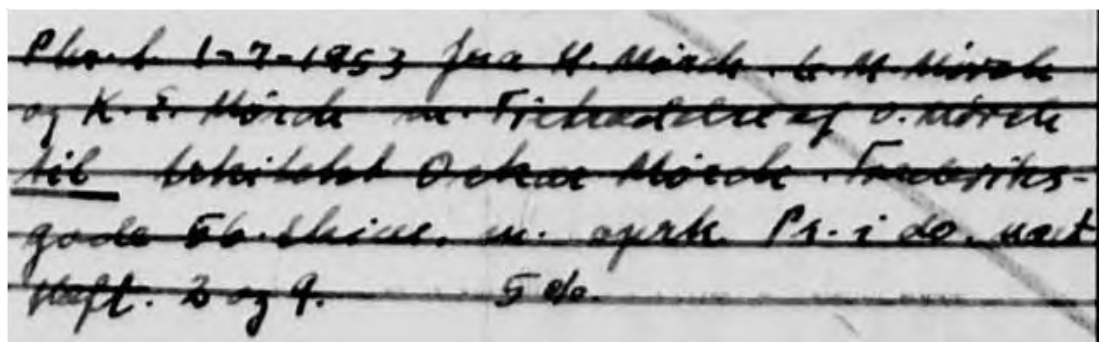 Pbr. l. 1-7-1953 fra H. Mørch. L. M. Mørch
og K. E. Mørch m. Frihedelse af O. Mørch
til Arkitekt Oskar Mørch. Frederiks-
gade 5b. Skive. m. oprk. Pr. i do. nævt
Heft. 2 og 9. 5 do.